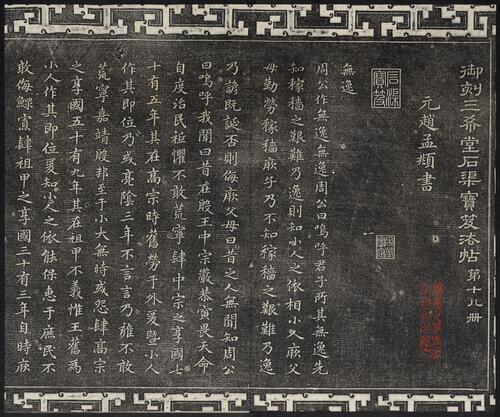 御刻三希堂石渠寶笈法帖第十九册
元趙孟頫書
石渠寶笈
無逸
周公作無逸無逸周公曰嗚呼君子所其無逸先
知稼穡之艱難乃逸則知小人之依相小人厥父
母勤勞稼穡厥子乃不知稼穡之艱難乃逸
乃諺既誕否則侮厥父母曰昔之人無聞知周公
曰嗚呼我聞曰昔在殷王中宗嚴恭寅畏天命
自度治民祗懼不敢荒寧肆中宗之享國七
十有五年其在高宗時舊勞于外爰暨小人
作其即位乃或亮陰三年不言言乃雍不敢
荒寧嘉靖殷邦至于小大無時或怨肆高宗
之享國五十有九年其在祖甲不義惟王舊為
小人作其即位爰知小人之依能保惠于庶民不
敢侮鰥寡肆祖甲之享國三十有三年自時厥